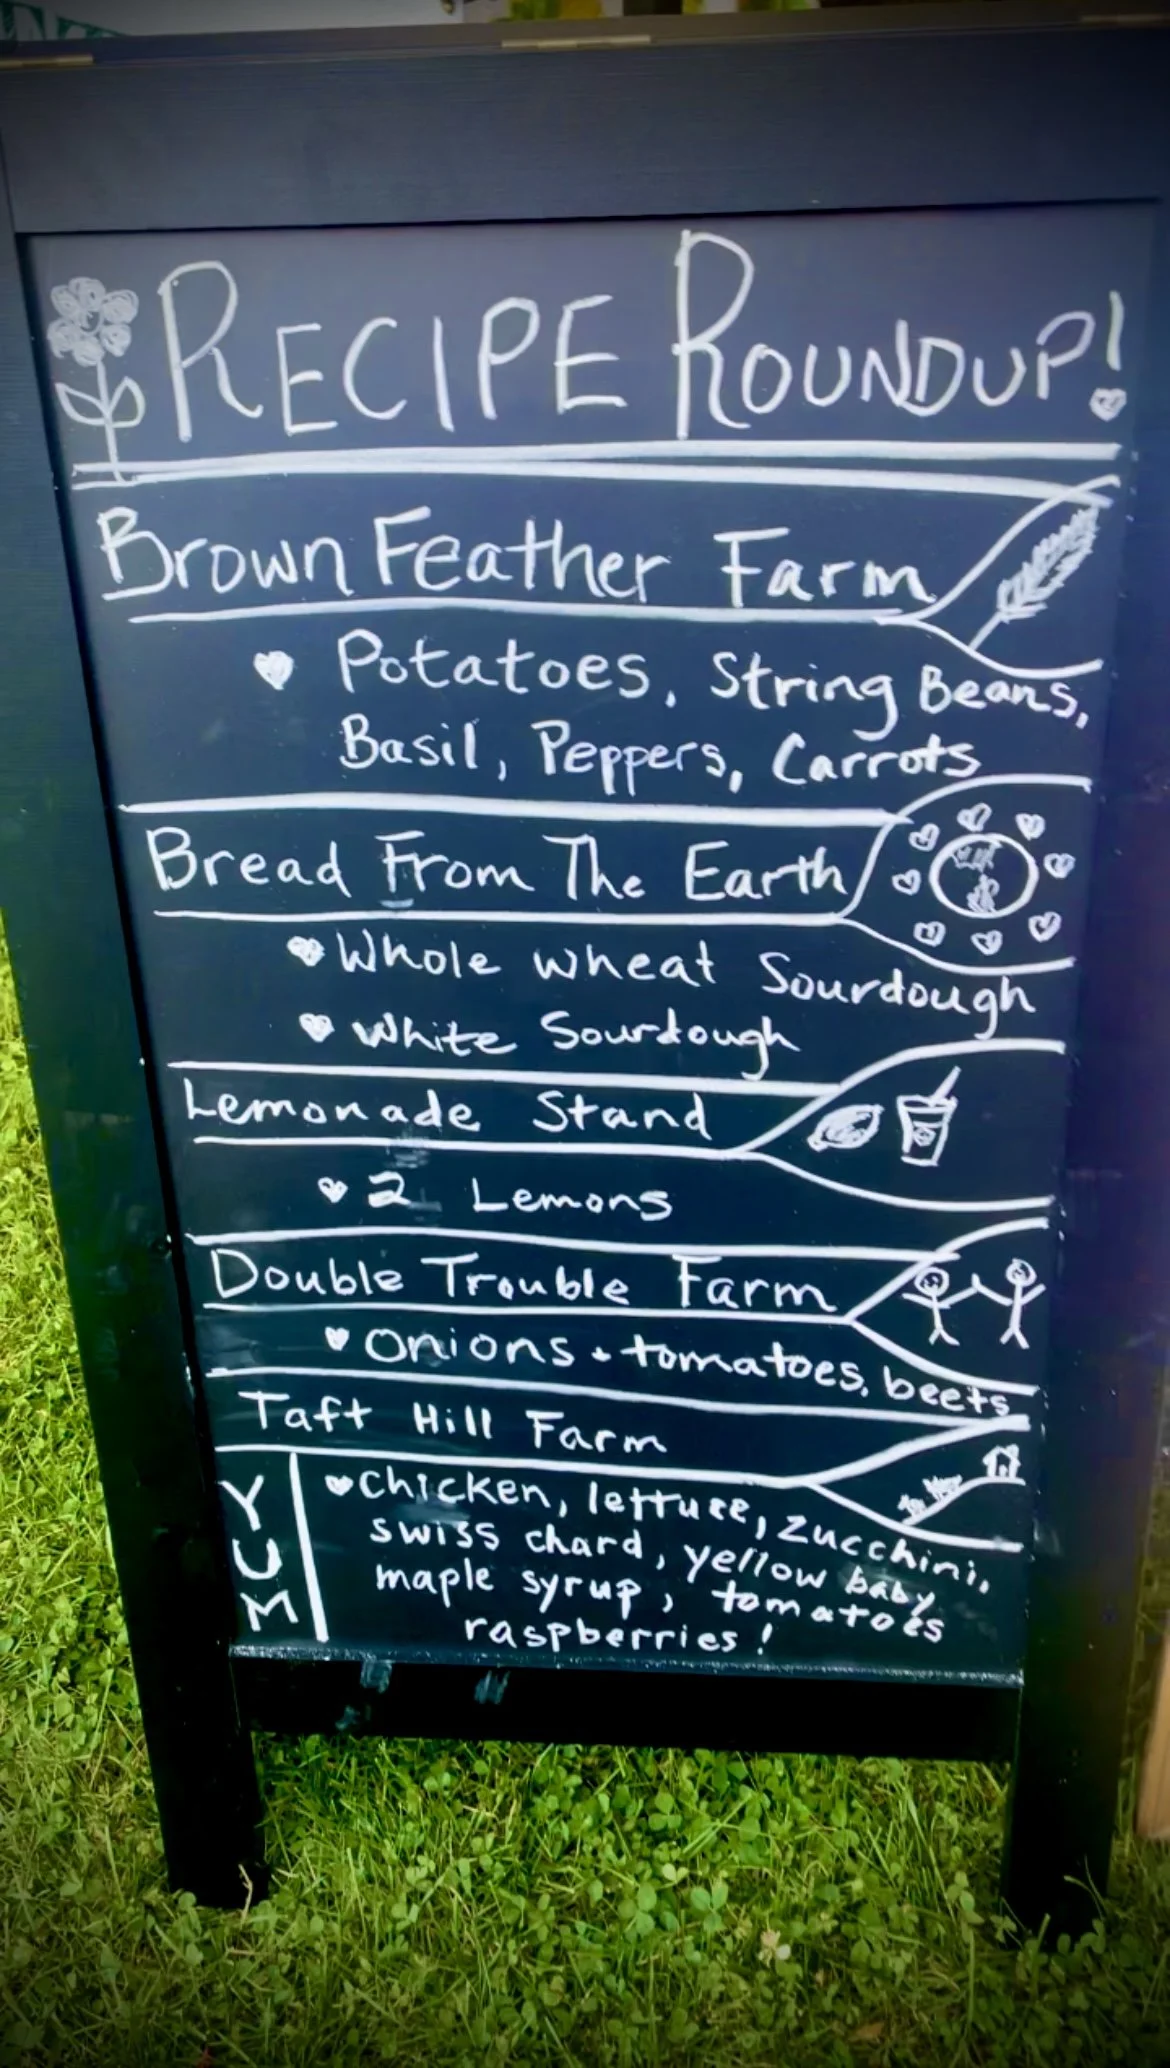 RECIPE ROUNDUP!
Brown Feather Farm
Potatoes, String Beans,
Basil, Peppers, Carrots
Bread From The Earth
Whole wheat Sourdough
White Sourdough
Lemonade Stand
2 Lemons
Double Trouble Farm
onions + tomatoes, beets
Taft Hill Farm
YUM
chicken, lettuce, zucchini,
swiss chard, yellow baby
maple syrup, tomatoes
raspberries!